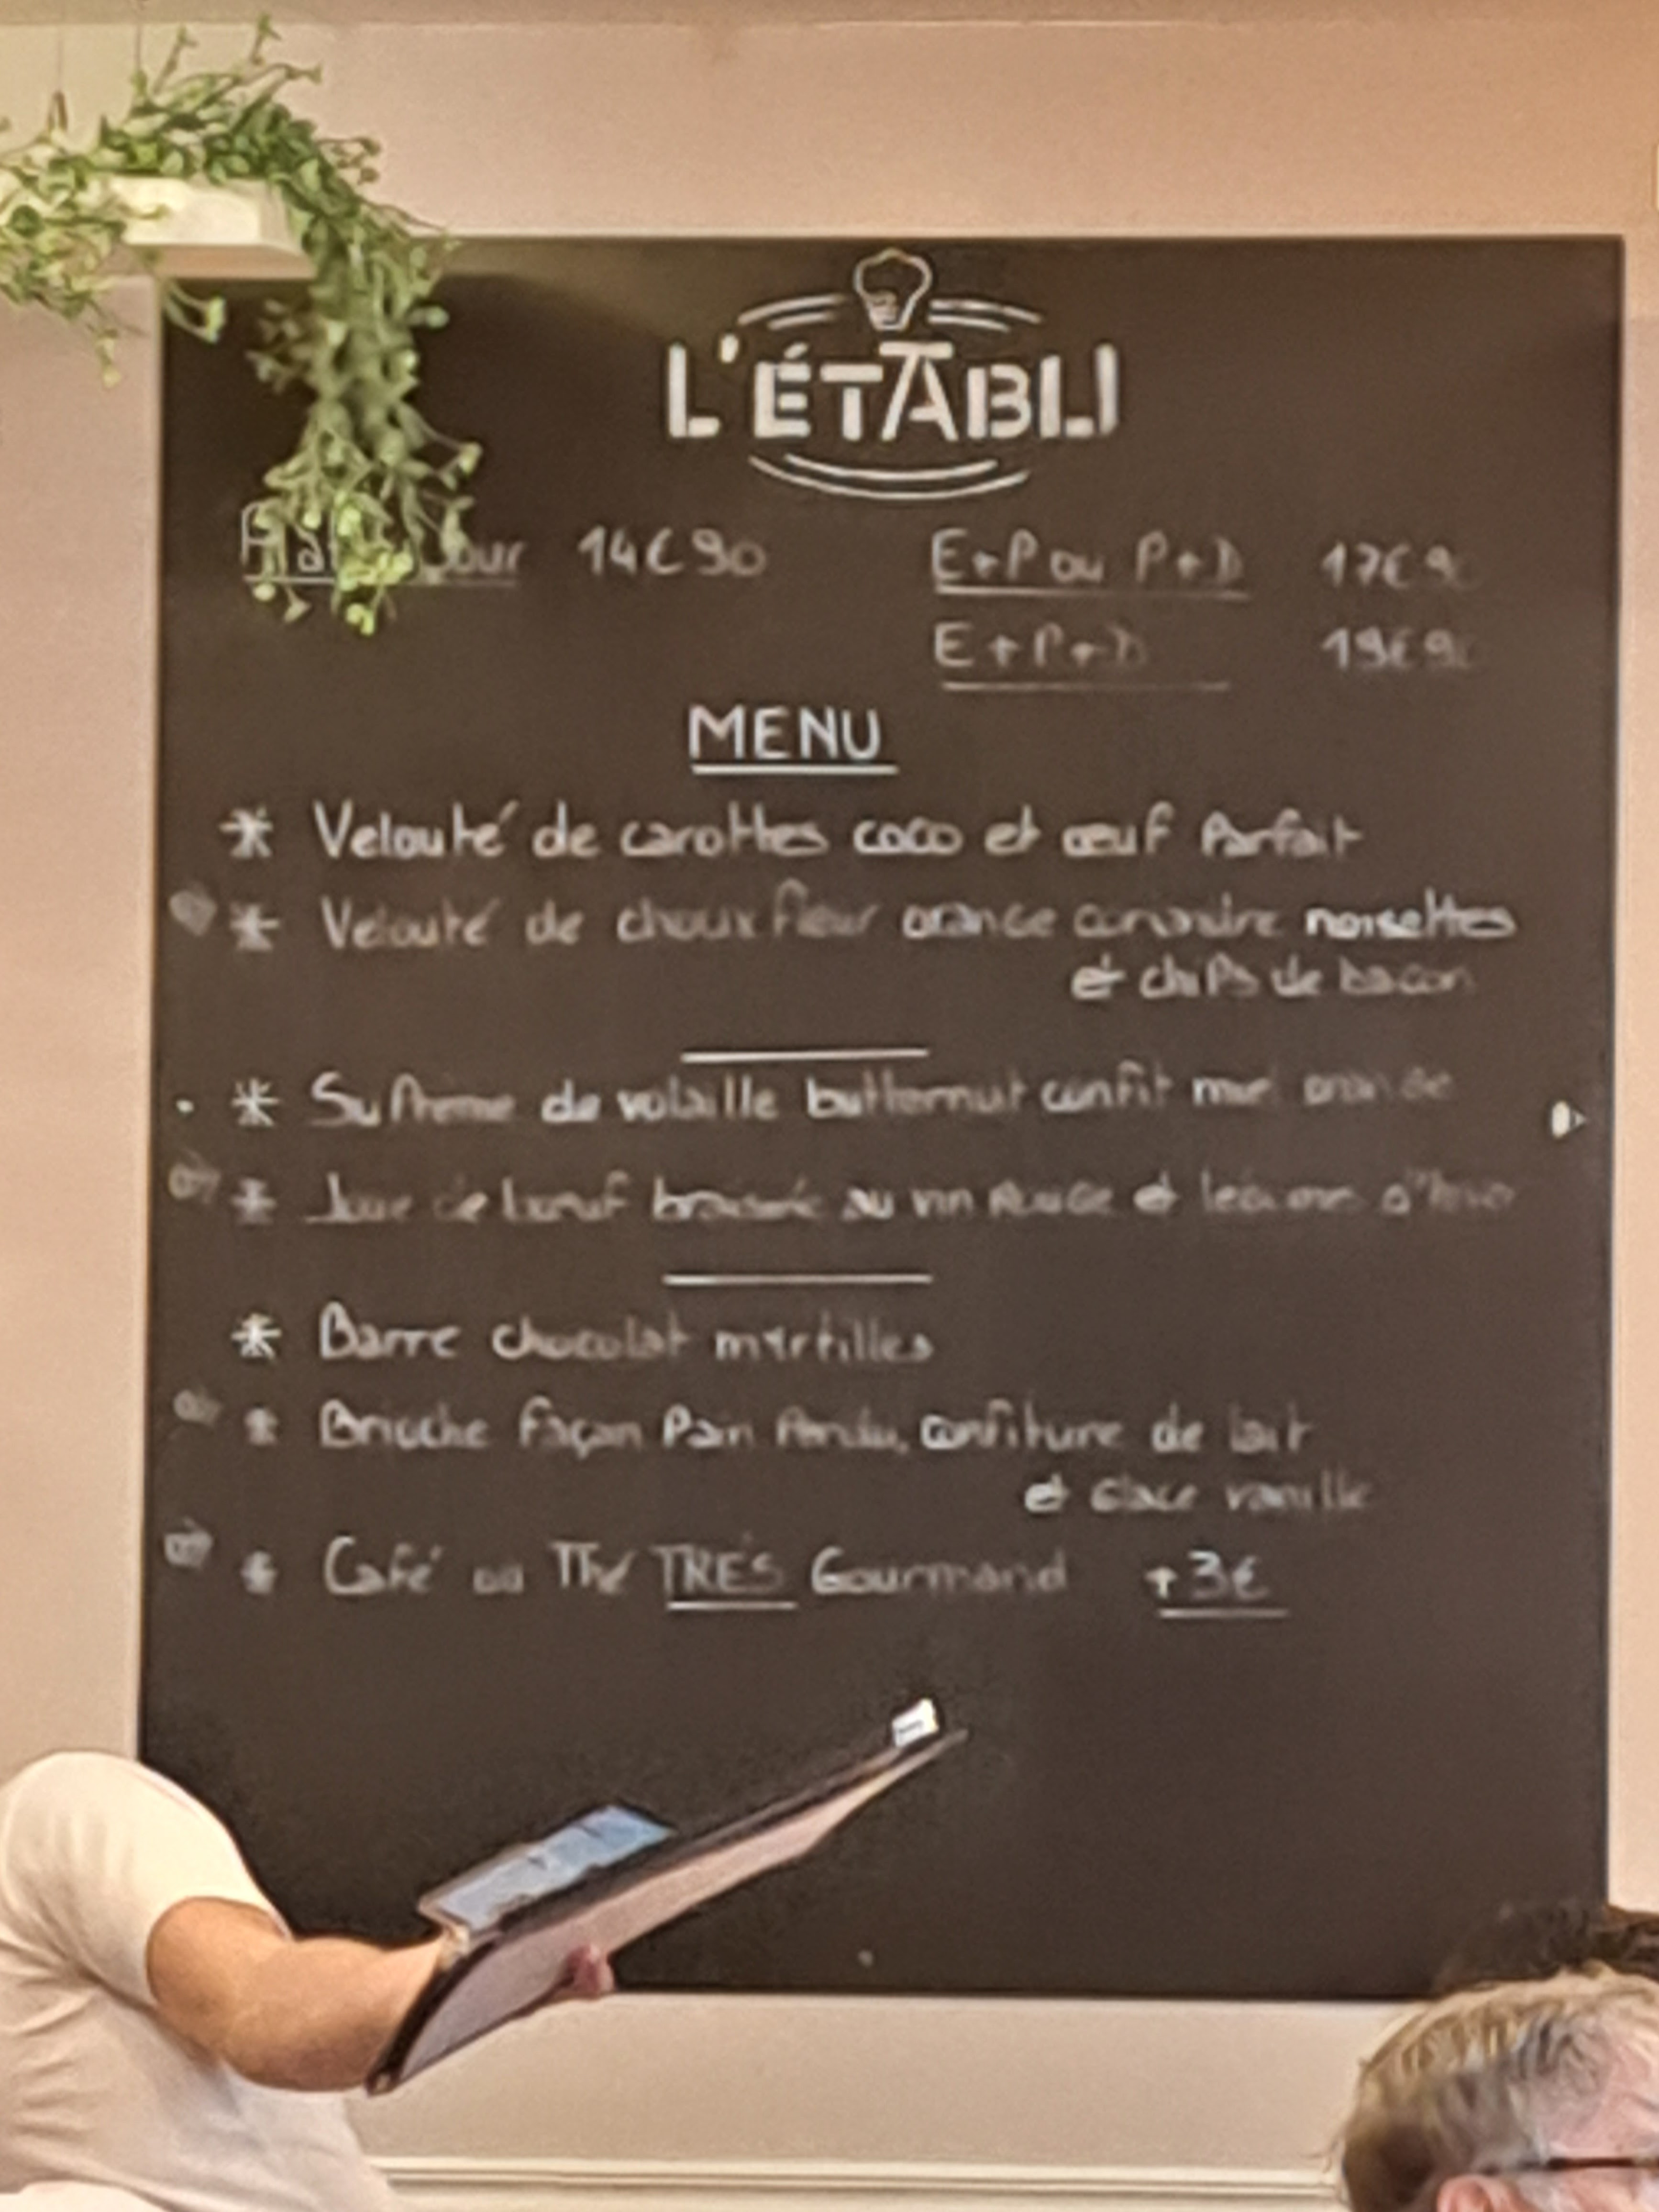 L'ÉTABLI
Jour 14€90
E+P ou P+D 17€90
E+P+D 19€90
MENU
* Velouté de carottes coco et œuf Parfait
* Velouté de choux fleur orange coriandre noisettes
et chips de bacon
* Suprême de volaille butternut confit miel orange
* Joue de bœuf braisée au vin rouge et légumes d'hiver
* Barre chocolat myrtilles
* Brioche façon Pain Perdu, confiture de lait
et glace vanille
* Café ou Thé TRÉS Gourmand +3€